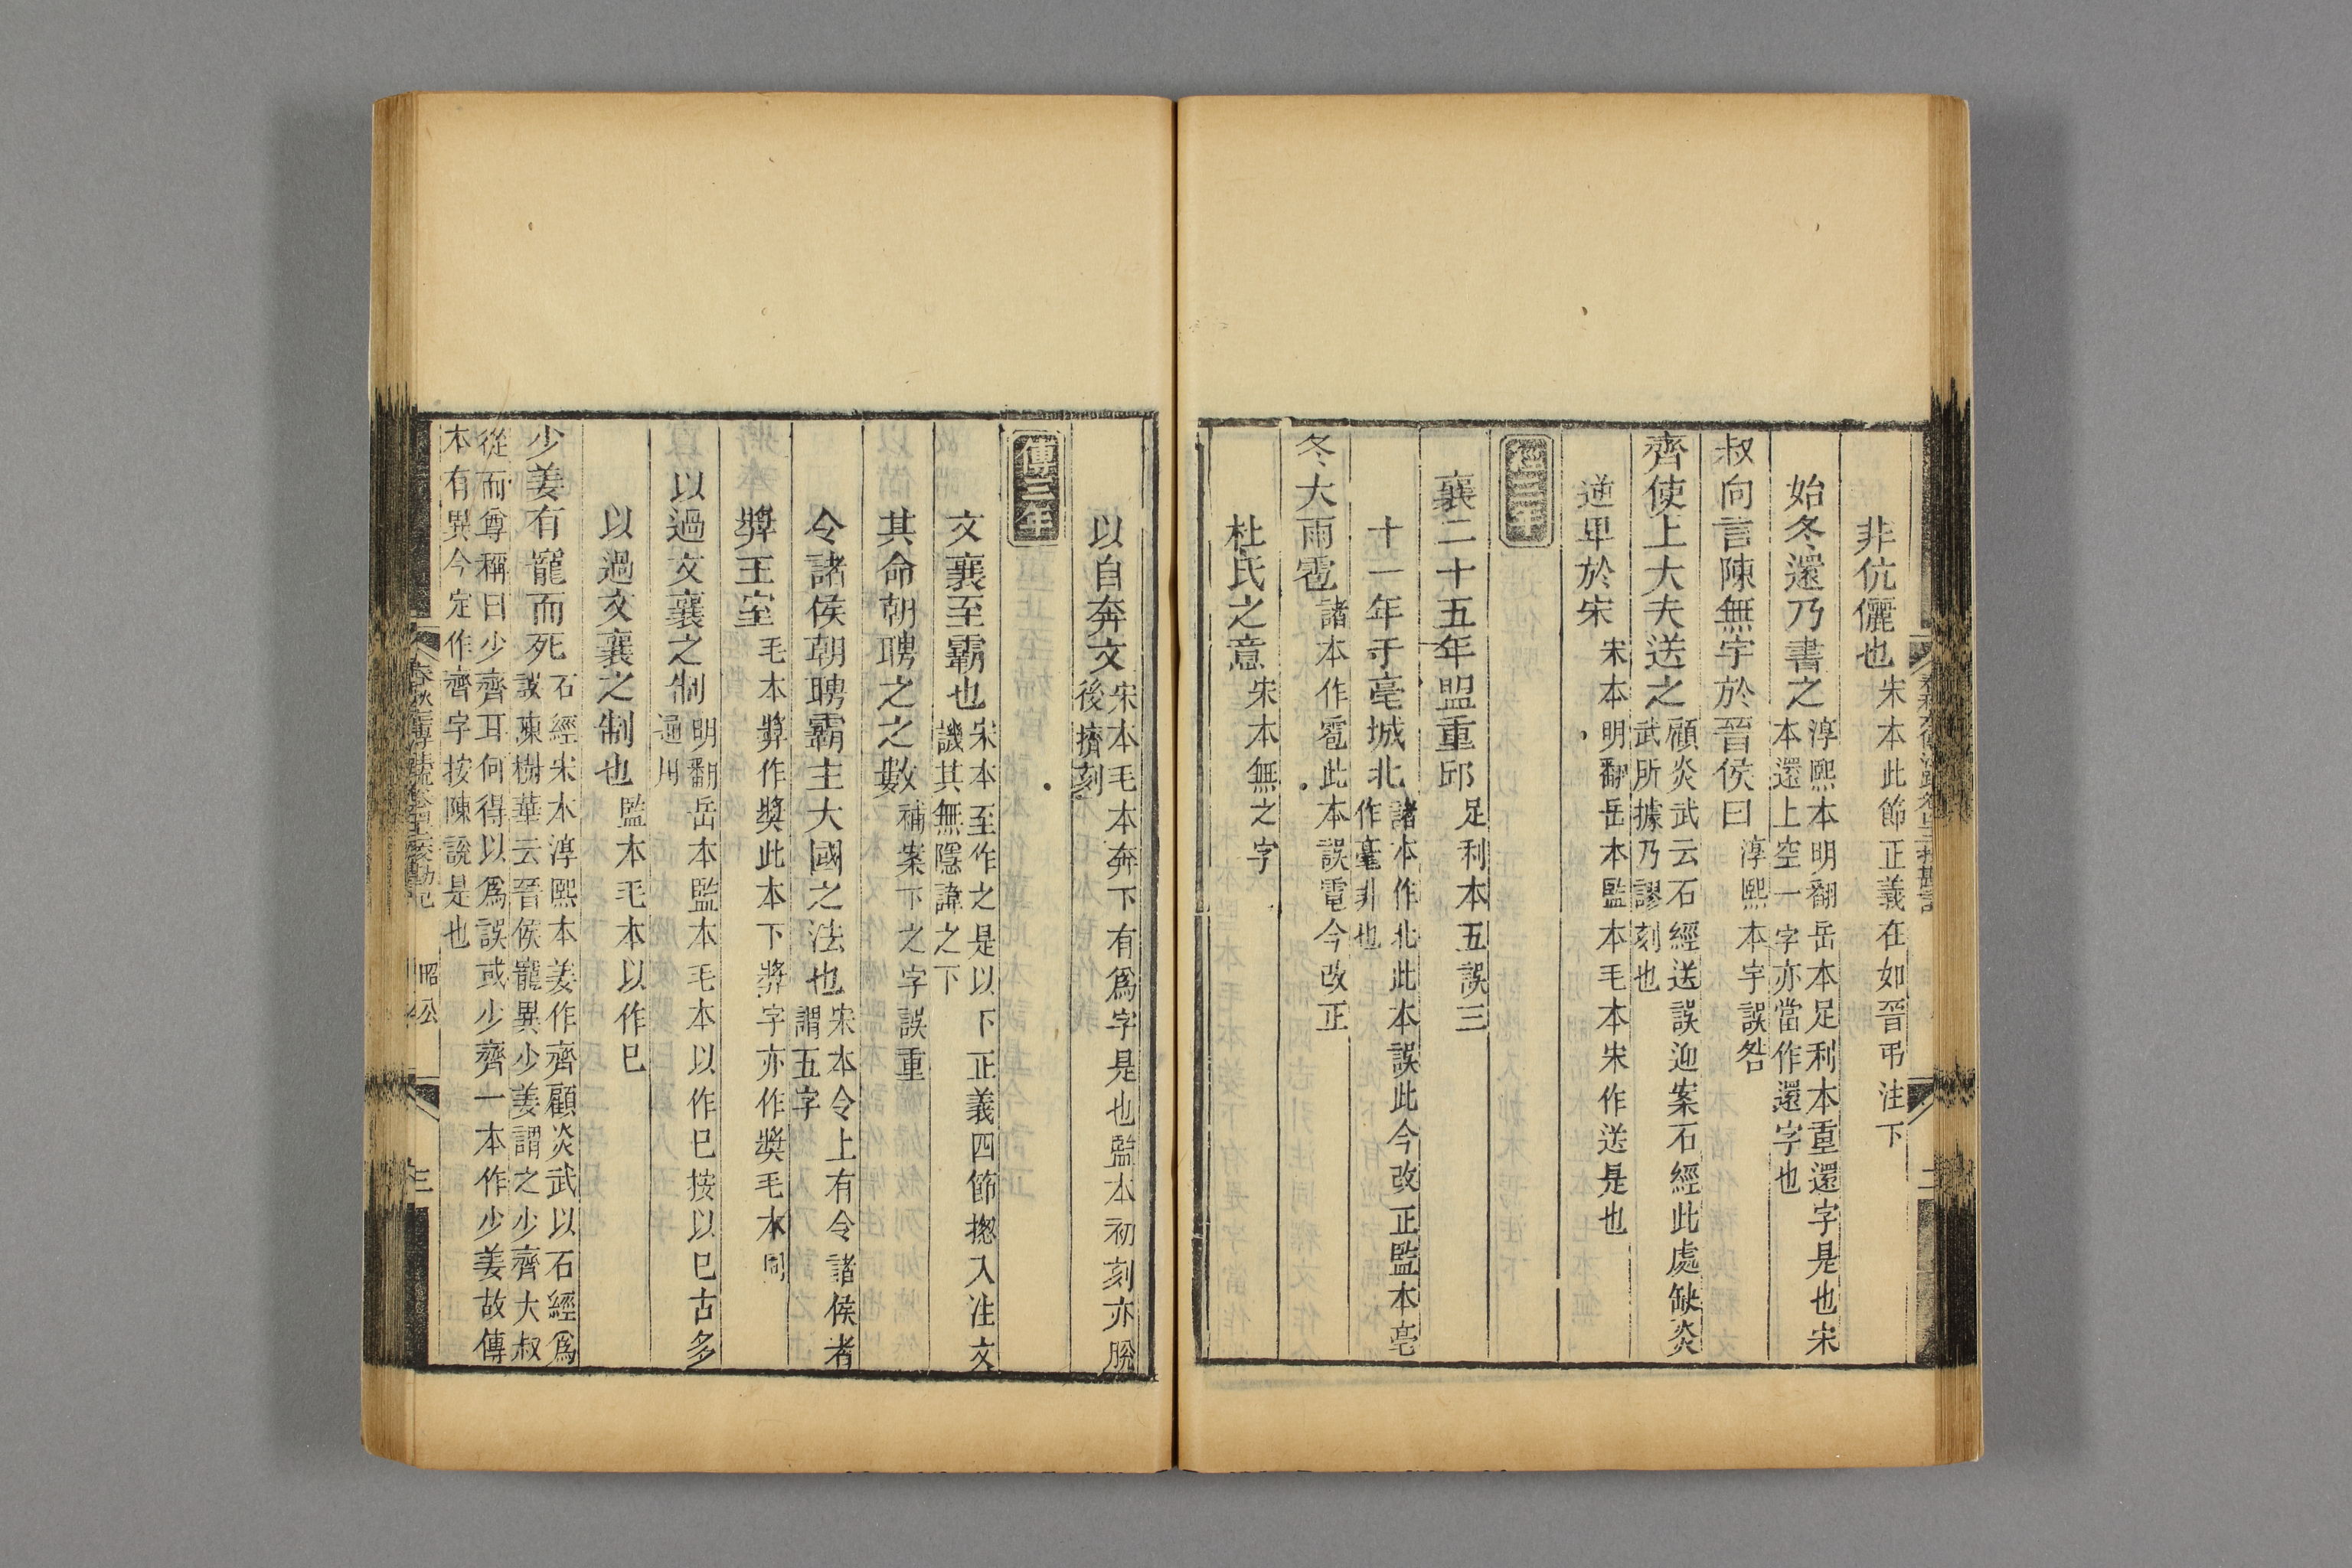 非伉儷也宋本此節正義在如晉弔注下
始冬還乃書之淳熙本明翻岳本足利本重還字是也宋
本還上空一字亦當作還字也
叔向言陳無宇於晉侯曰淳熙本宇誤咎
齊使上大夫送之顧炎武云石經送誤迎案石經此處缺炎
武所據乃謬刻也
逆卑於宋宋本明翻岳本監本毛本宋作送是也
經三年
襄二十五年盟重邱足利本五誤三
十一年于亳城北諸本作北此本誤此今改正監本亳
作毫非也
冬大雨雹諸本作雹此本誤電今改正
杜氏之意宋本無之字
春秋左傳注疏卷四十二挍勘記
二
以自奔文宋本毛本奔下有爲字是也監本初刻亦脫
後擠刻
傳三年
文襄至霸也宋本至作之是以下正義四節揔入注文
譏其無隱諱之下
其命朝聘之之數補案下之字誤重
令諸侯朝聘霸主大國之法也宋本令上有令諸侯者
謂五字
弉王室毛本弉作獎此本下弉字亦作獎毛本同
以過文襄之制明翻岳本監本毛本以作巳按以巳古多
通用
以過文襄之制也監本毛本以作巳
少姜有寵而死石經宋本淳熙本姜作齊顧炎武以石經爲
誤陳樹華云晉侯寵異少姜謂之少齊大叔
從而尊稱曰少齊耳何得以爲誤或少齊一本作少姜故傳
本有異今定作齊字按陳說是也
春秋左傳注疏卷四十二挍勘記
昭公
三